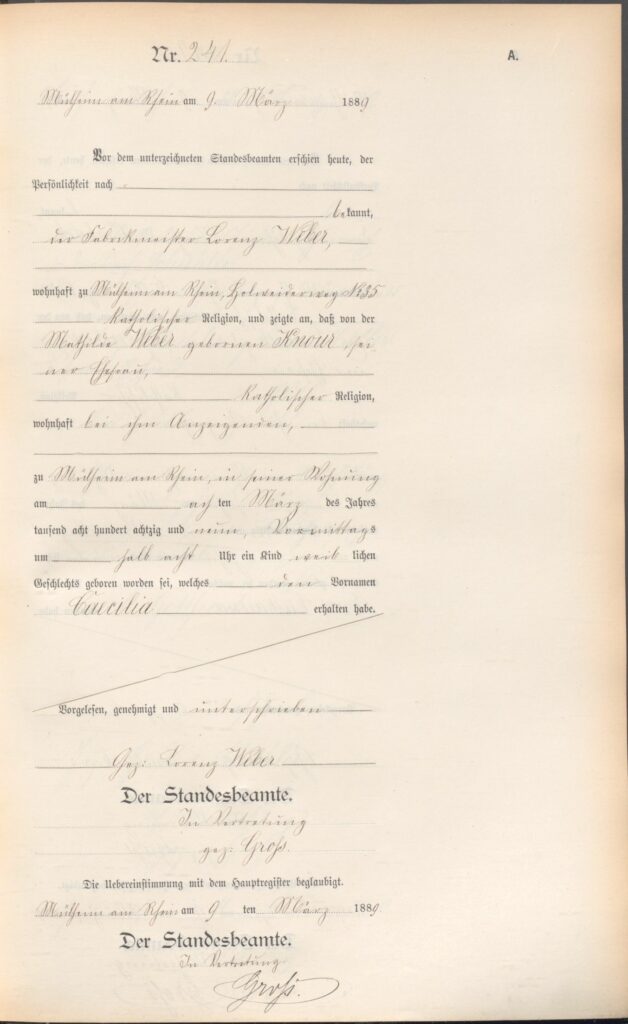 Nr. 241.
A.
Mülheim am Rhein am 9. März 1889
Vor dem unterzeichneten Standesbeamten erschien heute, der
Persönlichkeit nach
bekannt,
der Fabrikmeister Lorenz Weber,
wohnhaft zu Mülheim am Rhein, Holweiderweg No 35
katholischer Religion, und zeigte an, daß von der
Mathilde Weber gebornen Knour, sei
ner Ehefrau,
katholischer Religion,
wohnhaft bei ihm Anzeigenden,
zu Mülheim am Rhein, in seiner Wohnung
am achten März des Jahres
tausend acht hundert achtzig und neun, Vormittags
um halb acht Uhr ein Kind weiblichen
Geschlechts geboren worden sei, welches den Vornamen
Caecilia erhalten habe.
Vorgelesen, genehmigt und unterschrieben
Gez: Lorenz Weber
Der Standesbeamte.
In Vertretung
gez: Groß.
Die Uebereinstimmung mit dem Hauptregister beglaubigt.
Mülheim am Rhein am 9 ten März 1889
Der Standesbeamte.
In Vertretung.
Groß.